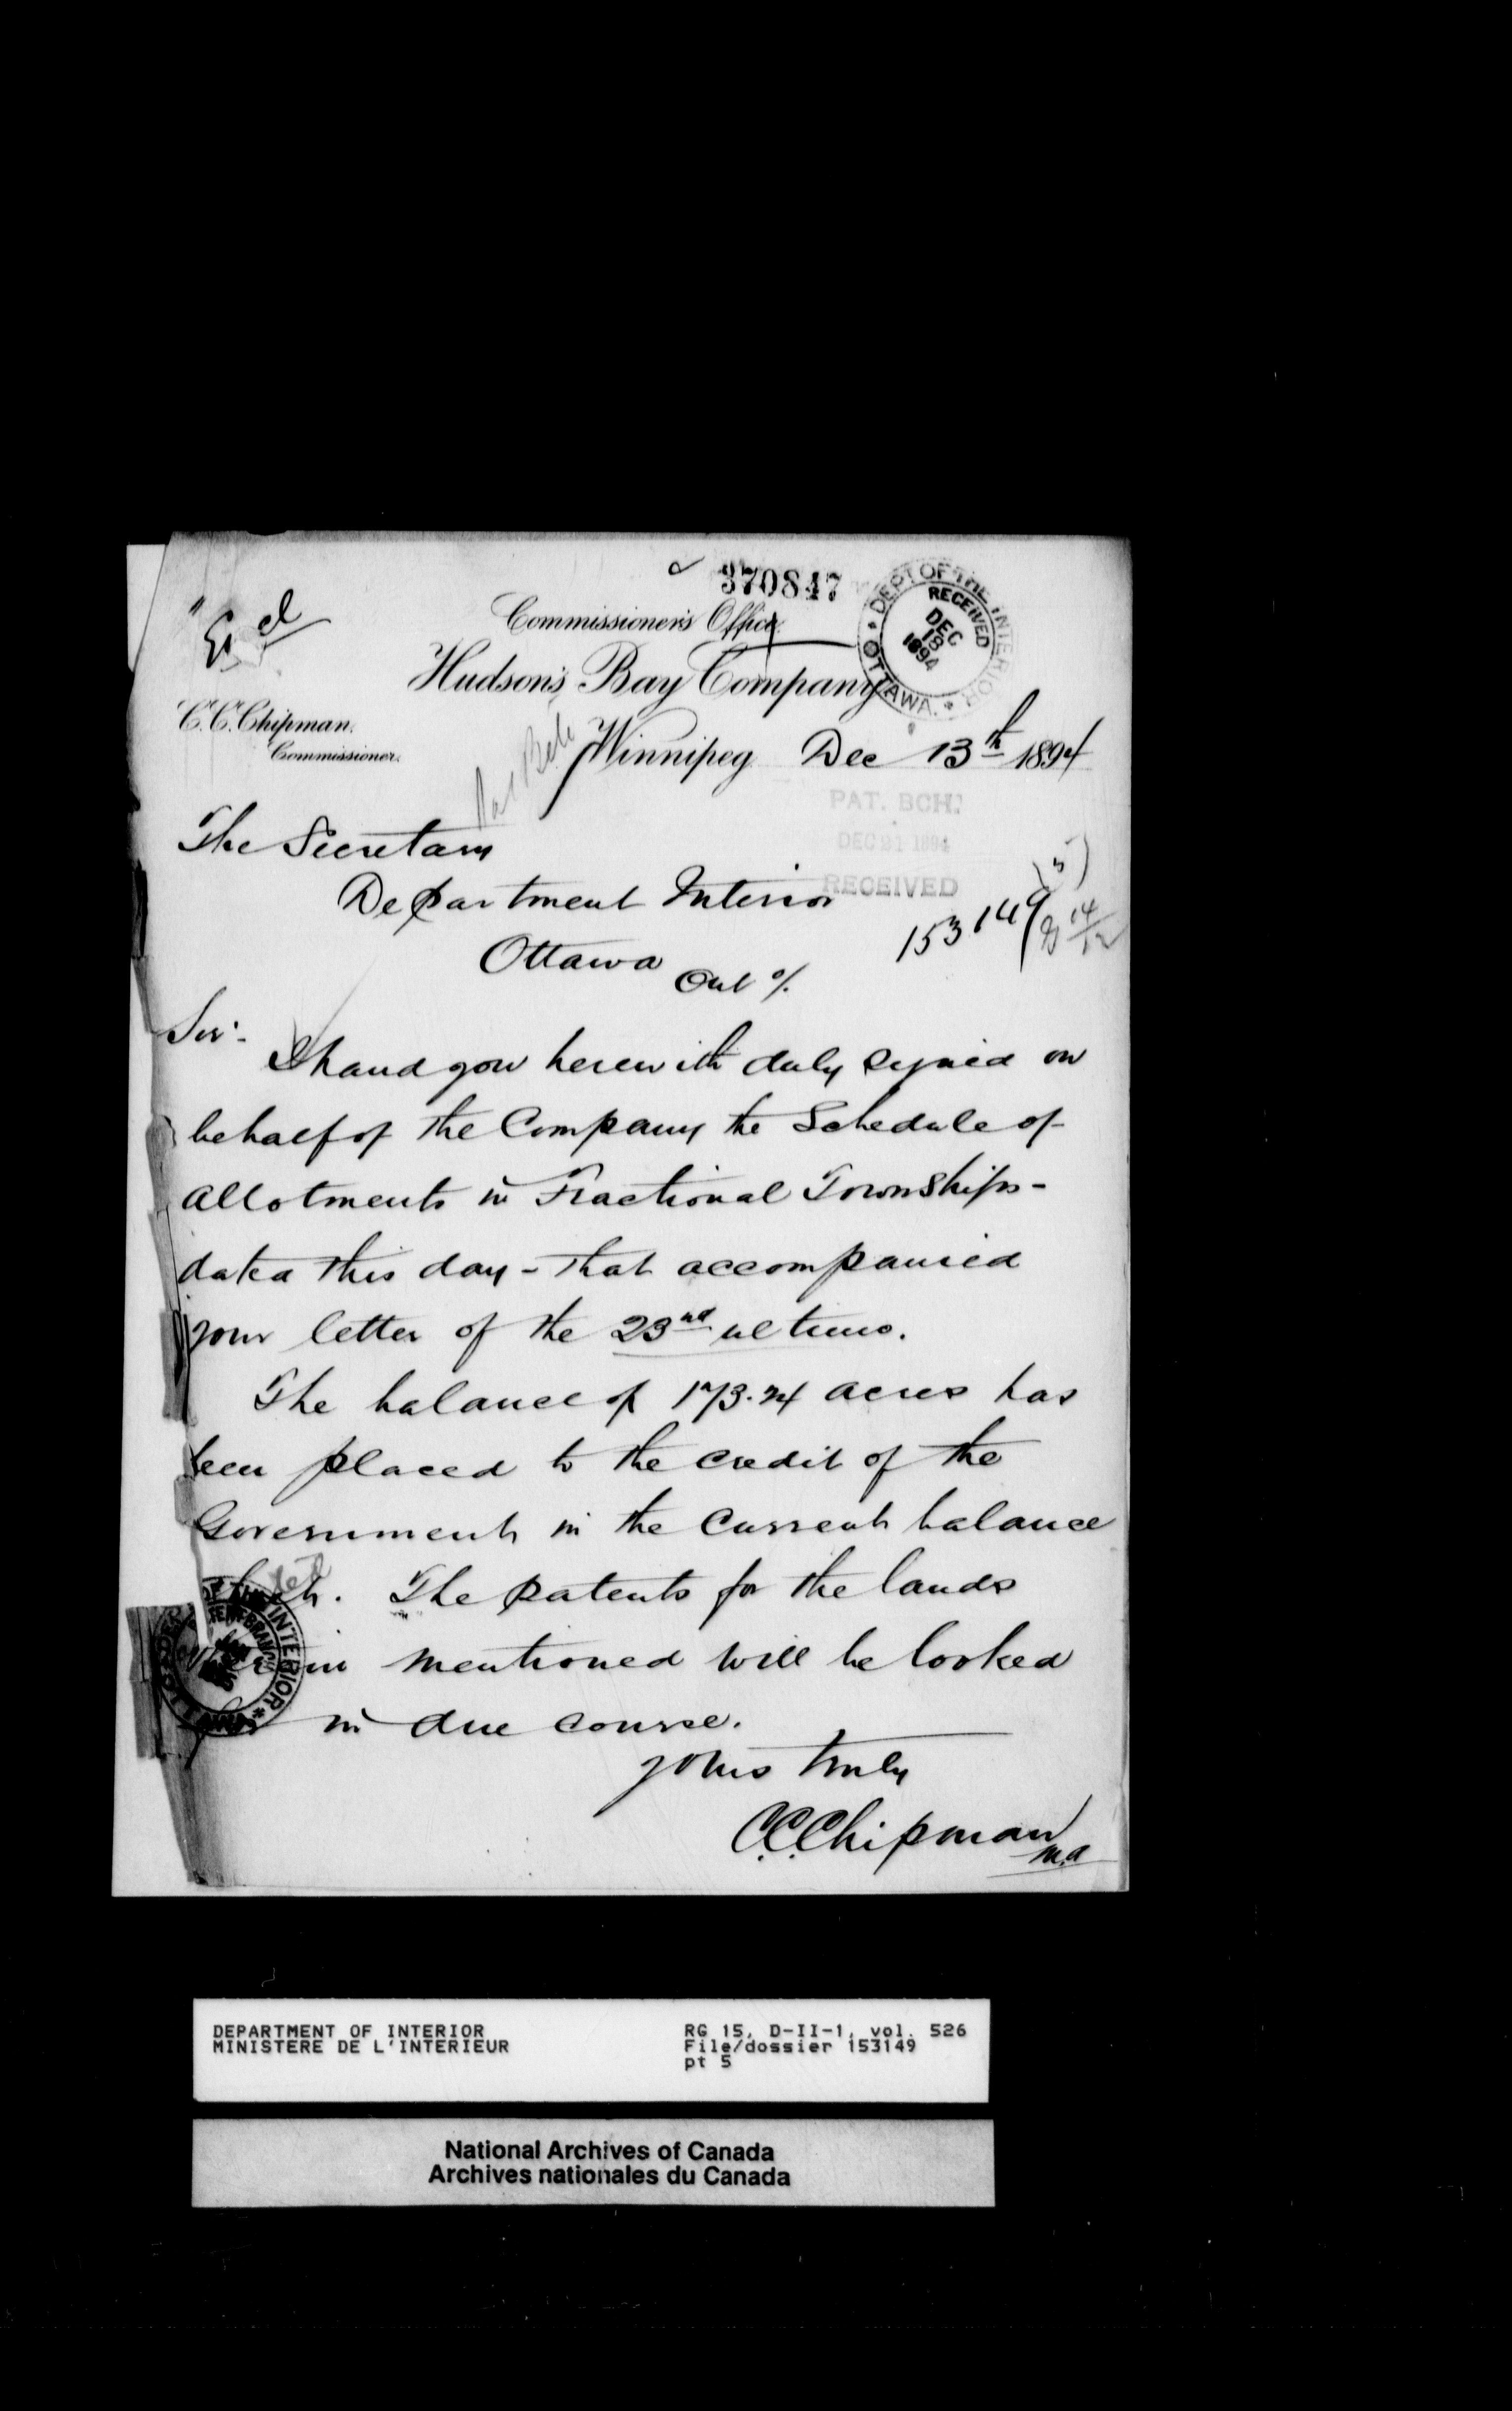 370847
DEPT OF THE INTERIOR
RECEIVED
DEC
18
1894
OTTAWA.
Commissioner's Office
Hudson's Bay Company
C.C. Chipman.
Commissioner.
Winnipeg Dec 13th 1894
PAT. BCH.
DEC 21 1894
RECEIVED
The Secretary
Department Interior
153149 (5)
Ottawa
Ont
Sir:-
I hand you herewith duly signed on
behalf of the Company the Schedule of
allotments in Fractional Townships -
dated this day - that accompanied
your letter of the 23rd ultimo.
The balance of 173.24 acres has
been placed to the credit of the
Government in the Current balance
The patents for the lands
mentioned will be looked
for in due course.
Yours truly
C.C. Chipman
DEPARTMENT OF INTERIOR
MINISTERE DE L'INTERIEUR
RG 15, D-II-1, vol. 526
File/dossier 153149
pt 5
National Archives of Canada
Archives nationales du Canada